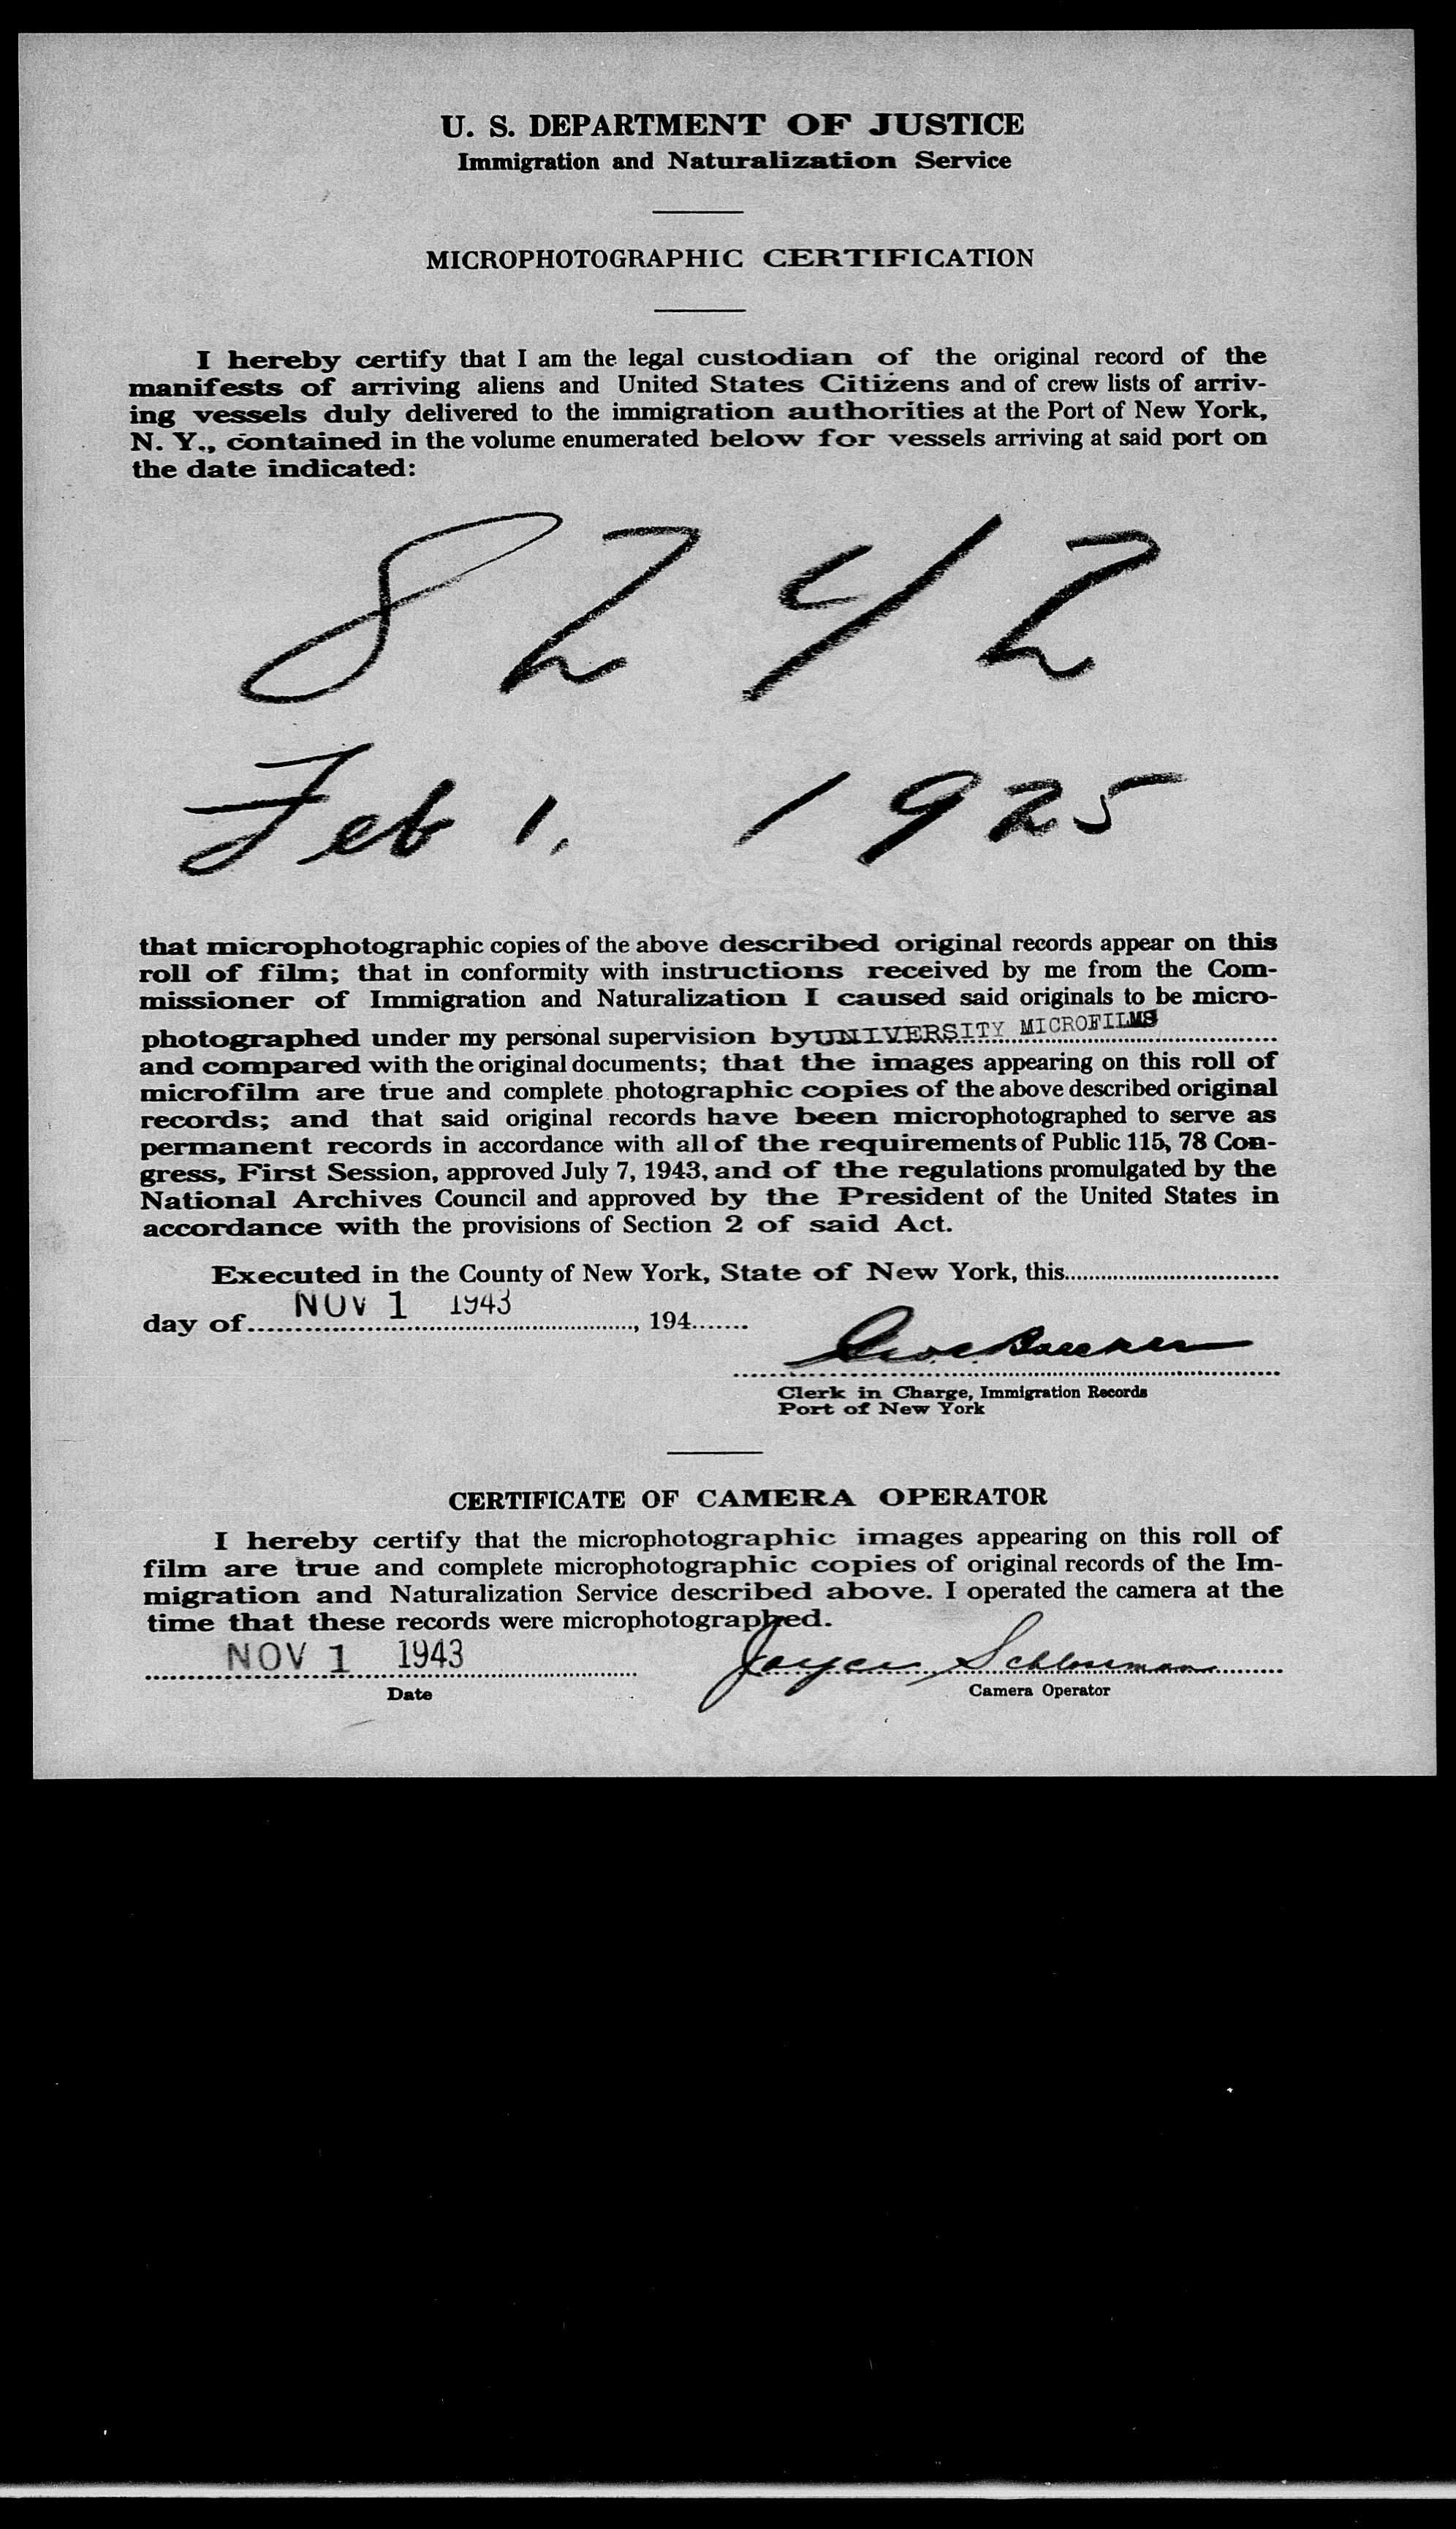 U. S. DEPARTMENT OF JUSTICE
Immigration and Naturalization Service
MICROPHOTOGRAPHIC CERTIFICATION
I hereby certify that I am the legal custodian of the original record of the
manifests of arriving aliens and United States Citizens and of crew lists of arriv-
ing vessels duly delivered to the immigration authorities at the Port of New York,
N. Y., contained in the volume enumerated below for vessels arriving at said port on
the date indicated:
8242
Feb 1, 1925
that microphotographic copies of the above described original records appear on this
roll of film; that in conformity with instructions received by me from the Com-
missioner of Immigration and Naturalization I caused said originals to be micro-
photographed under my personal supervision by UNIVERSITY MICROFILMS
and compared with the original documents; that the images appearing on this roll of
microfilm are true and complete photographic copies of the above described original
records; and that said original records have been microphotographed to serve as
permanent records in accordance with all of the requirements of Public 115, 78 Con-
gress, First Session, approved July 7, 1943, and of the regulations promulgated by the
National Archives Council and approved by the President of the United States in
accordance with the provisions of Section 2 of said Act.
Executed in the County of New York, State of New York, this
day of NOV 1 1943, 194
Clerk in Charge, Immigration Records
Port of New York
CERTIFICATE OF CAMERA OPERATOR
I hereby certify that the microphotographic images appearing on this roll of
film are true and complete microphotographic copies of original records of the Im-
migration and Naturalization Service described above. I operated the camera at the
time that these records were microphotographed.
NOV 1 1943
Date
Camera Operator